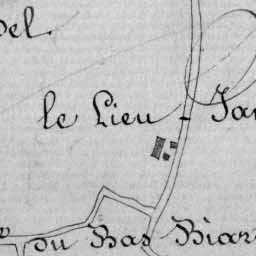 del
le Lieu - Jan
du Bas Biar